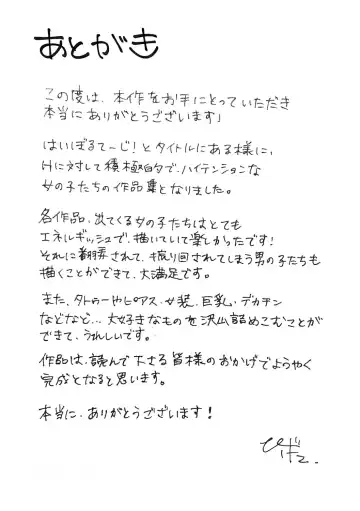 あとがき
この度は、本作をお手にとっていただき
本当にありがとうございます」
はいぼるてーじ!とタイトルにある様に、
Hに対して積極的で、ハイテンションな
女の子たちの作品集となりました。
各作品、出てくる女の子たちはとても
エネルギッシュで、描いていて楽しかったです!
それに翻弄されて、振り回されてしまう男の子たちも
描くことができて、大満足です。
また、タトゥーやピアス、女装、巨乳、デカチン
などなど...大好きなものを沢山詰めこむことが
できて、うれしいです。
作品は、読んで下さる皆様のおかげでようやく
完成となると思います。
本当に、ありがとうございます!